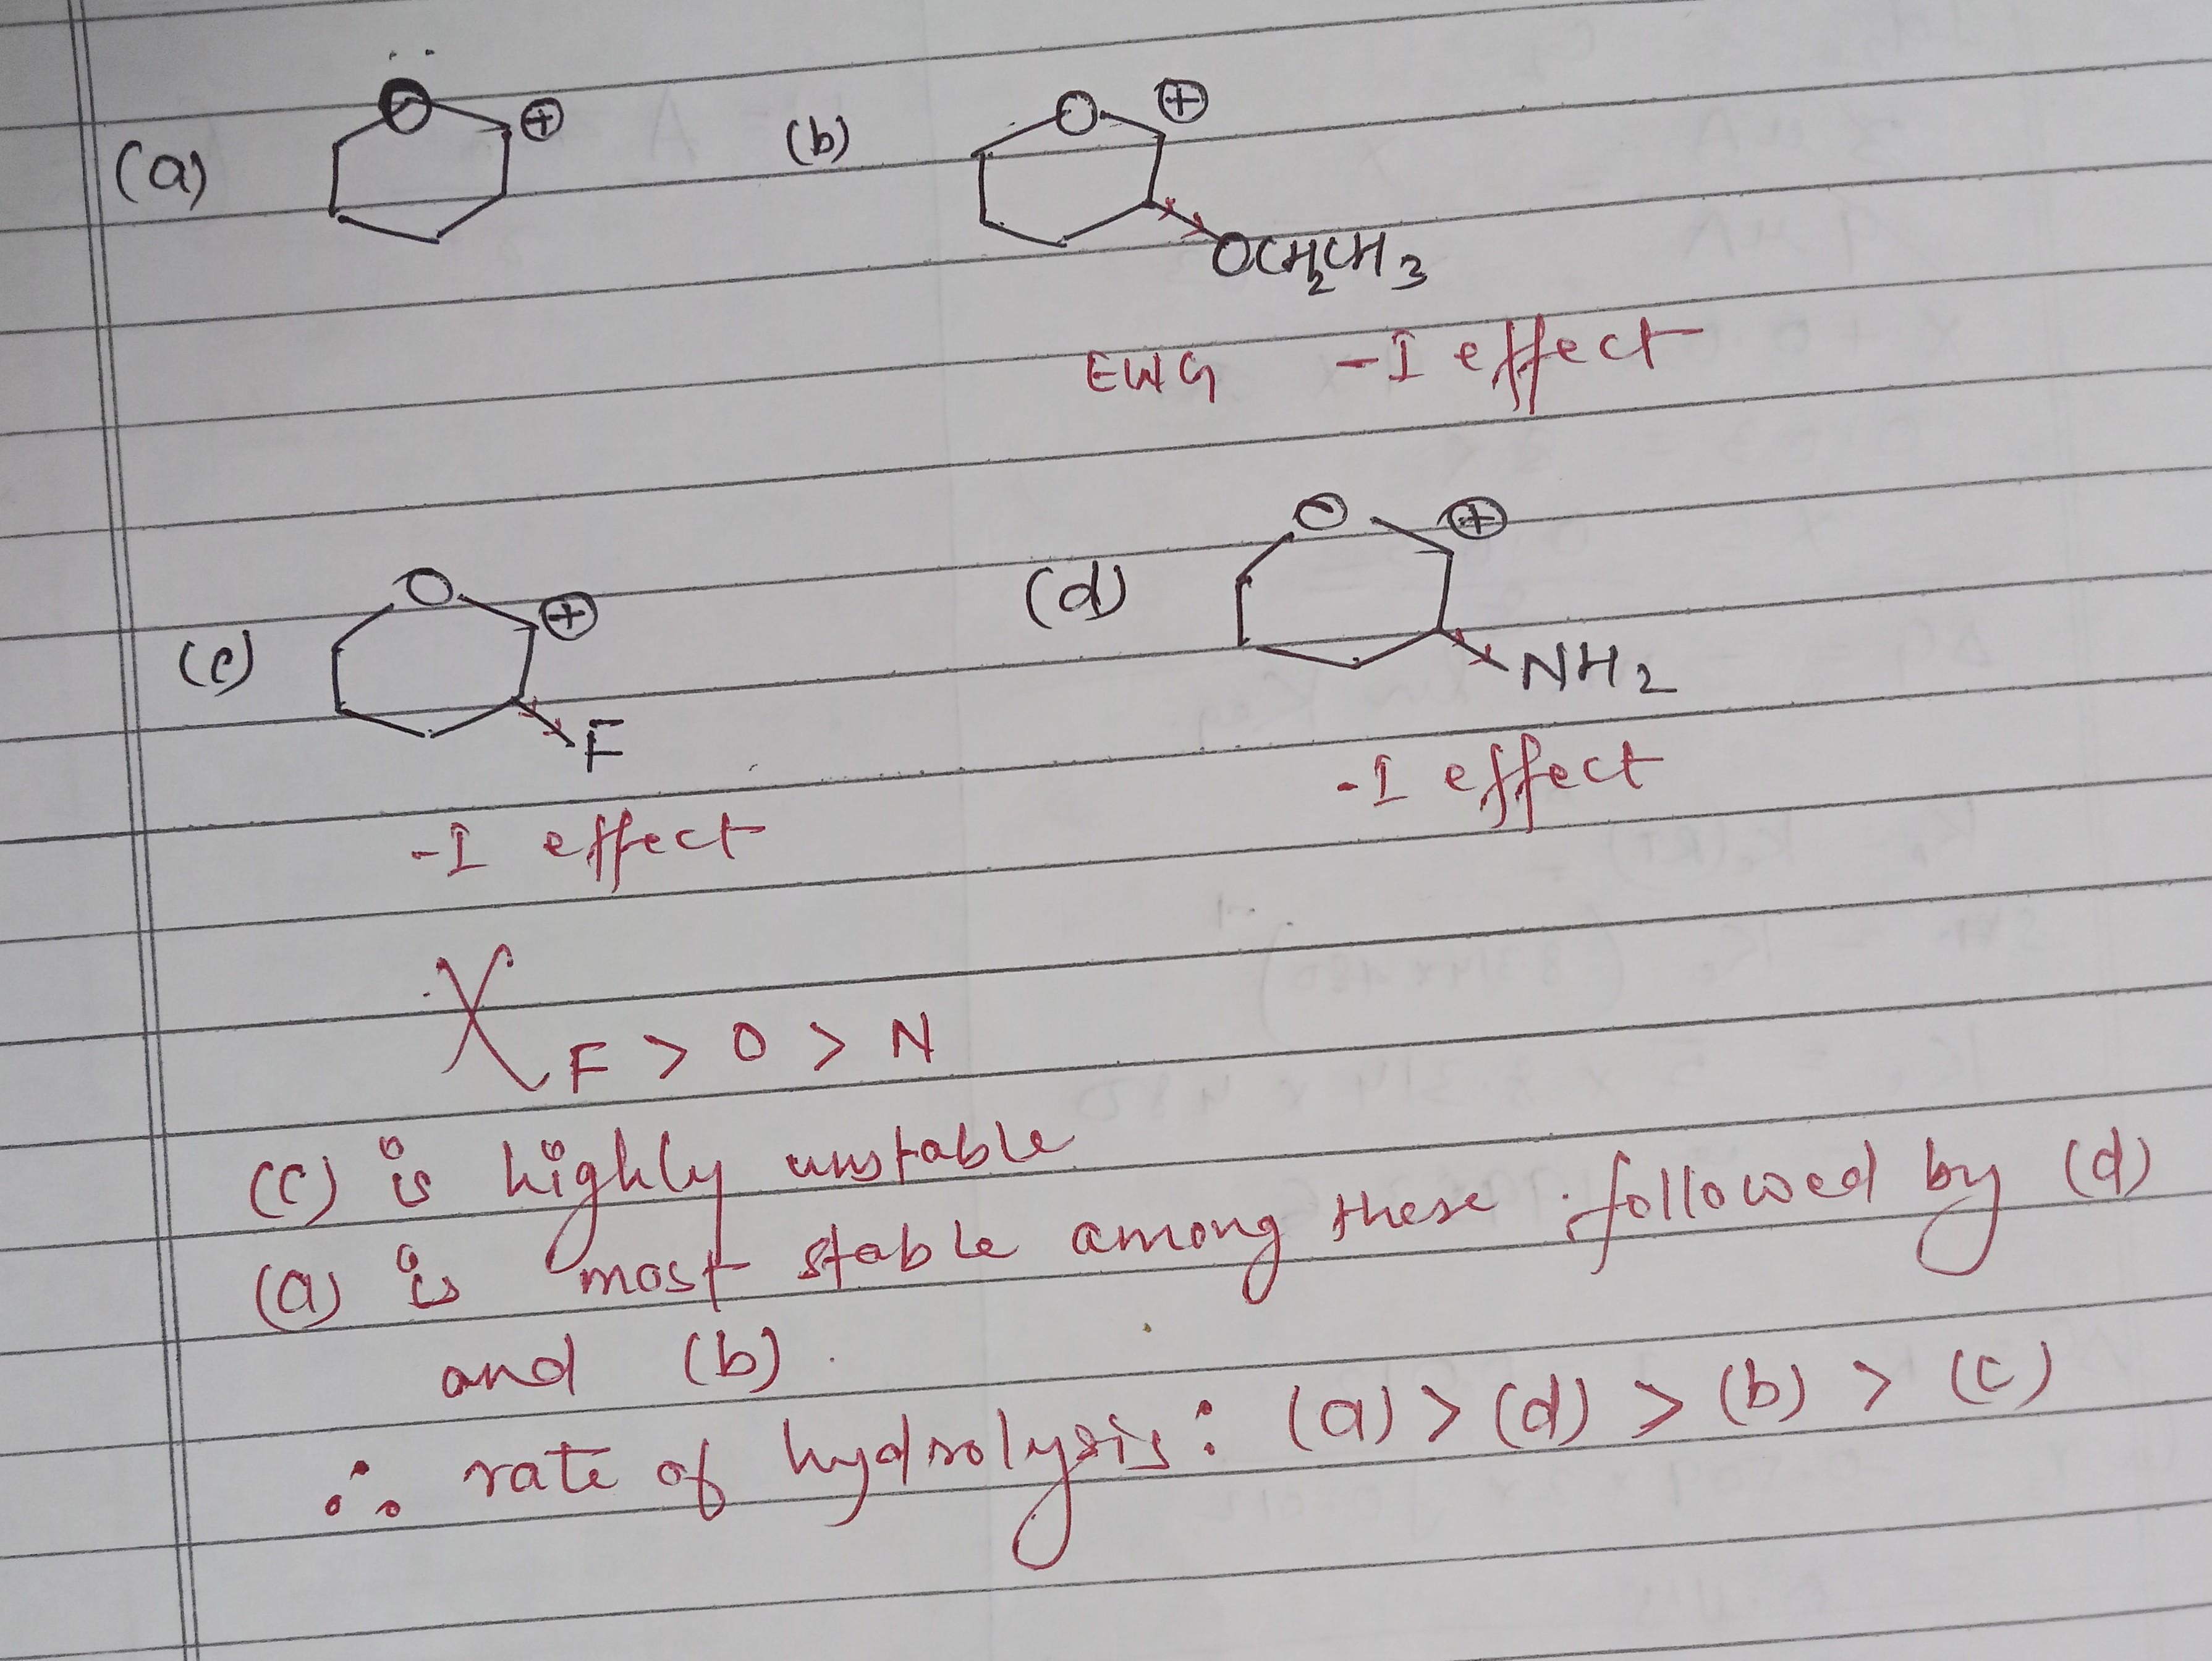 (a) O ⊕
(b) O ⊕
OCH2CH3
EWG -I effect
(c) O ⊕
F
-I effect
(d) O ⊕
NH2
-I effect
X F > O > N
(c) is highly unstable
(a) is most stable among these followed by (d)
and (b).
∴ rate of hydrolysis : (a) > (d) > (b) > (c)